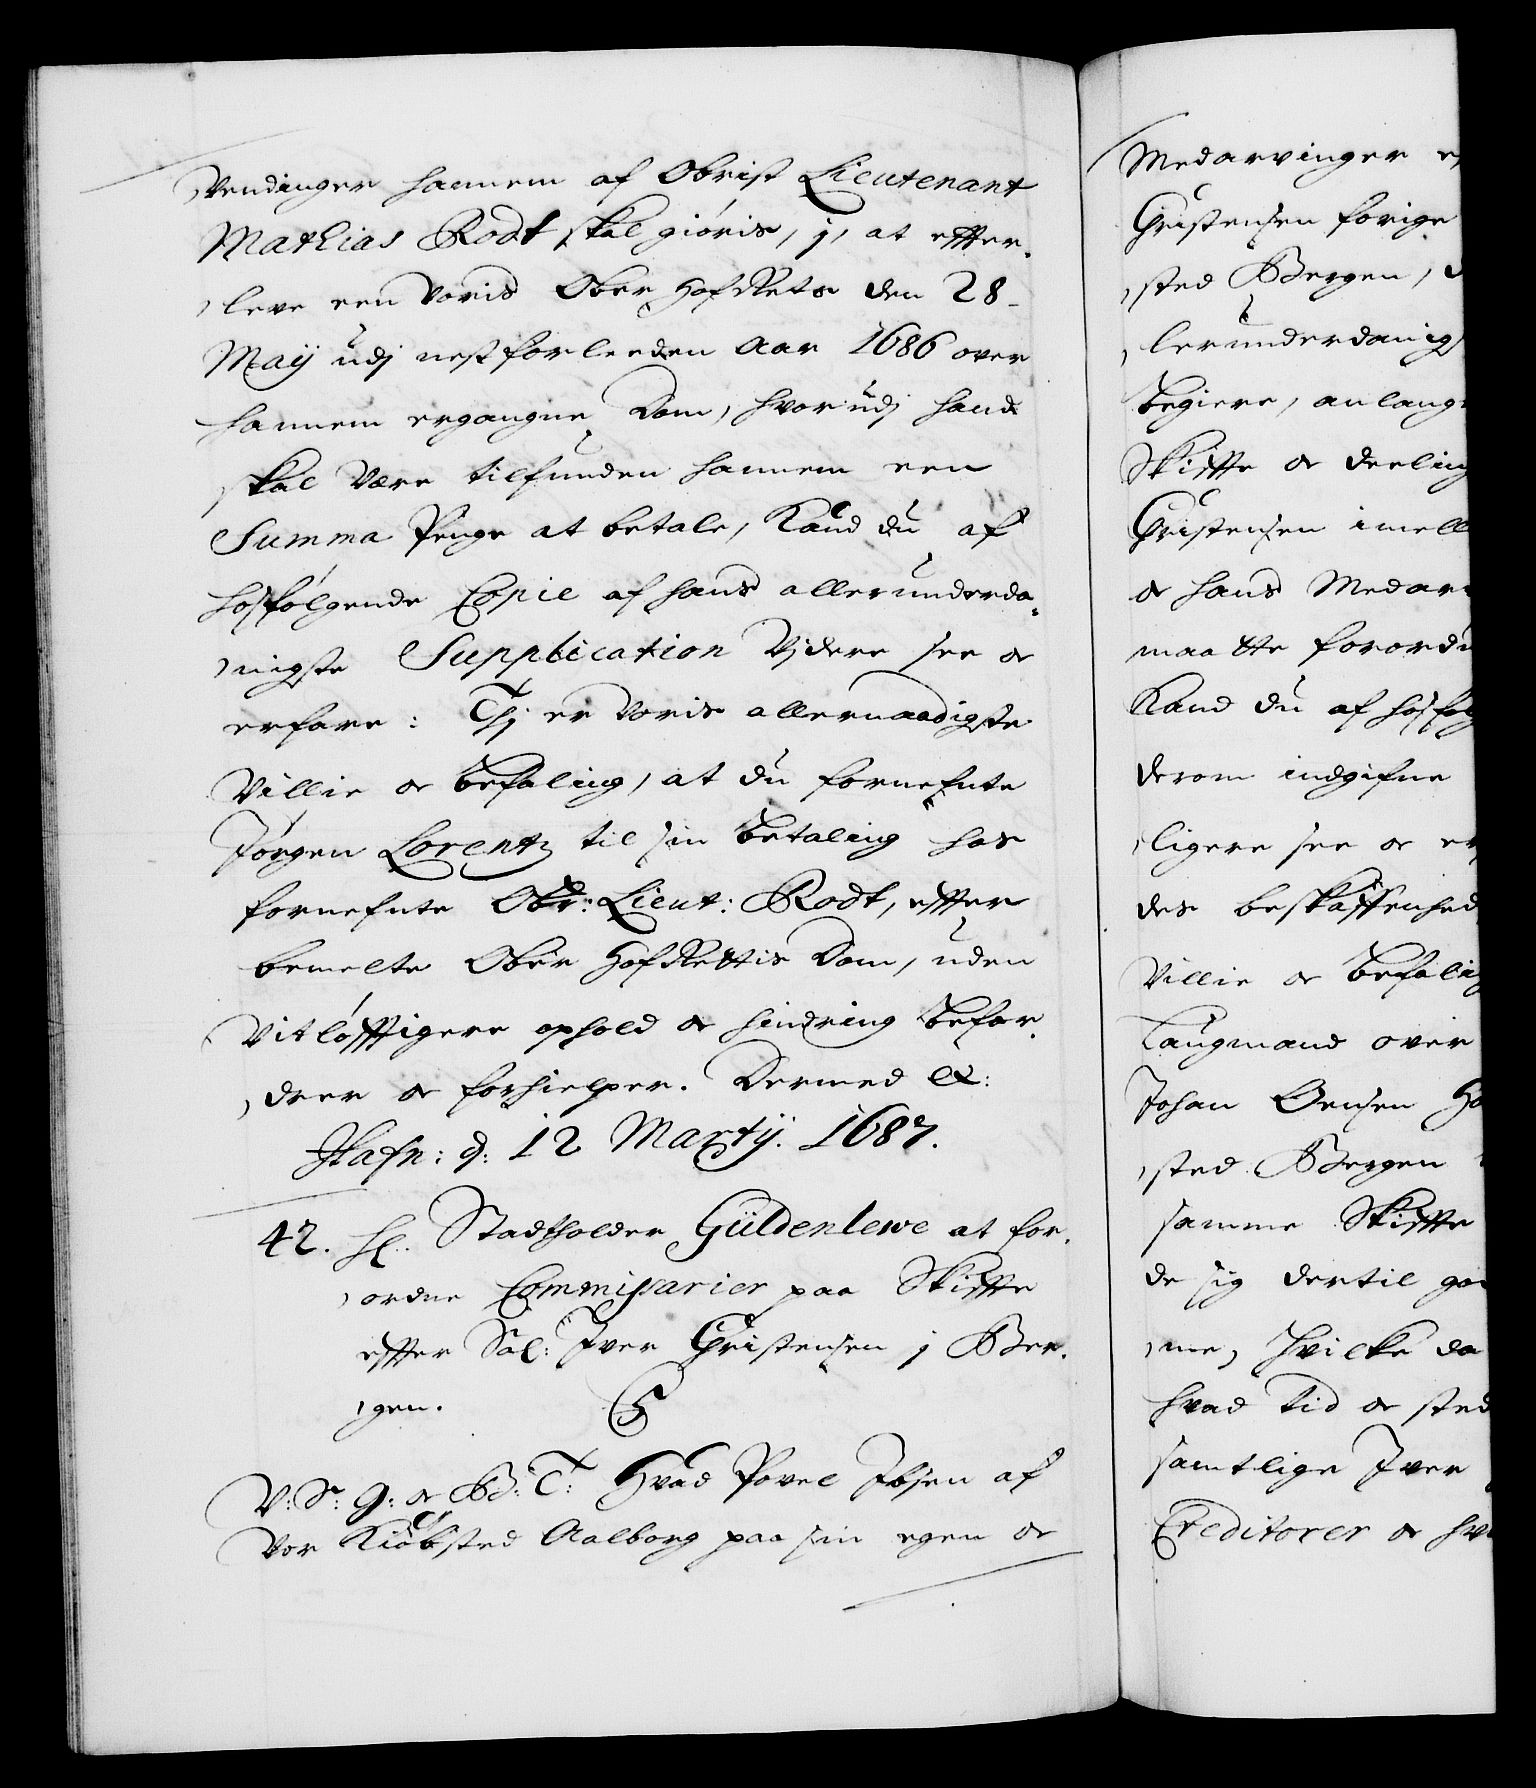 Vendinger hannem af Obrist Lieutenant
Mathias Rodt skal giöris, j, at effter-
leve een Voris Ober HofRets den 28-
Maÿ udj nestforleeden Aar 1686 over
hannem ergangne Dom, hvorudj hand
skal Være tilfunden hannem een
Summa Penge at betale, Kand du af
hosfölgende Copie af hans allerunderda-
nigste Supplication Vjdere see oc
erfare: Thj er Voris allernaadigste
Villie oc befaling, at du fornefnte
Jörgen Lorentz til sin betaling hos
fornefnte Obr: Lieut: Rodt, effter
bemelte Ober HofRettis Dom, uden
Vitlöfftigere ophold oc hindring befor-
drer oc forhielper. Dermed &:
Hafn: d: 12 Martij. 1687.
42. H. Stadtholder Güldenlewe at for-
ordne Commissarier paa Skiffte
effter Sal: Iver Christensen j Ber-
gen. C5
V: S: G: oc B: T: Hvad Povel Ibsen af
Vor Kiöbsted Aalborg paa sin egen oc
Medarvinger
Christensen forige
sted Bergen,
lerunderdanigst
begiere, anlang
Skiffte oc deeling
Christensen imell
oc hans Medar
maatte forordn
Kand du af hosföl
derom indgifne
ligere see oc er
des beskaffenhed
Villie oc befaling
Laugmand over
Johan Ørnsen
sted Bergen
samme Skiffte
de sig dertil
me, hvilke da
hvad tid oc sted
samtlige Iver
Creditorer oc hv